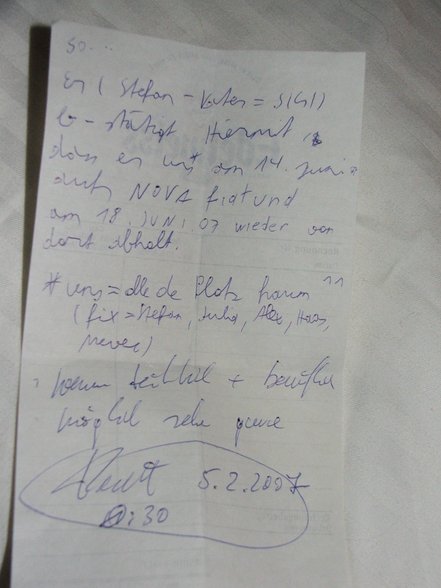 so...
Er ( Stefan - Vater = S(G))
be-stätigt Hiermit,
dass er uns* am 14. Juni
aufs NOVA fährt und
am 18. JUNI 07 wieder von
dort abholt.
* uns = alle die Platz haben
(fix = Stefan, Julia, Alex, Hans,
wenn +
möglich sehr gerne
5.2.2007
:30